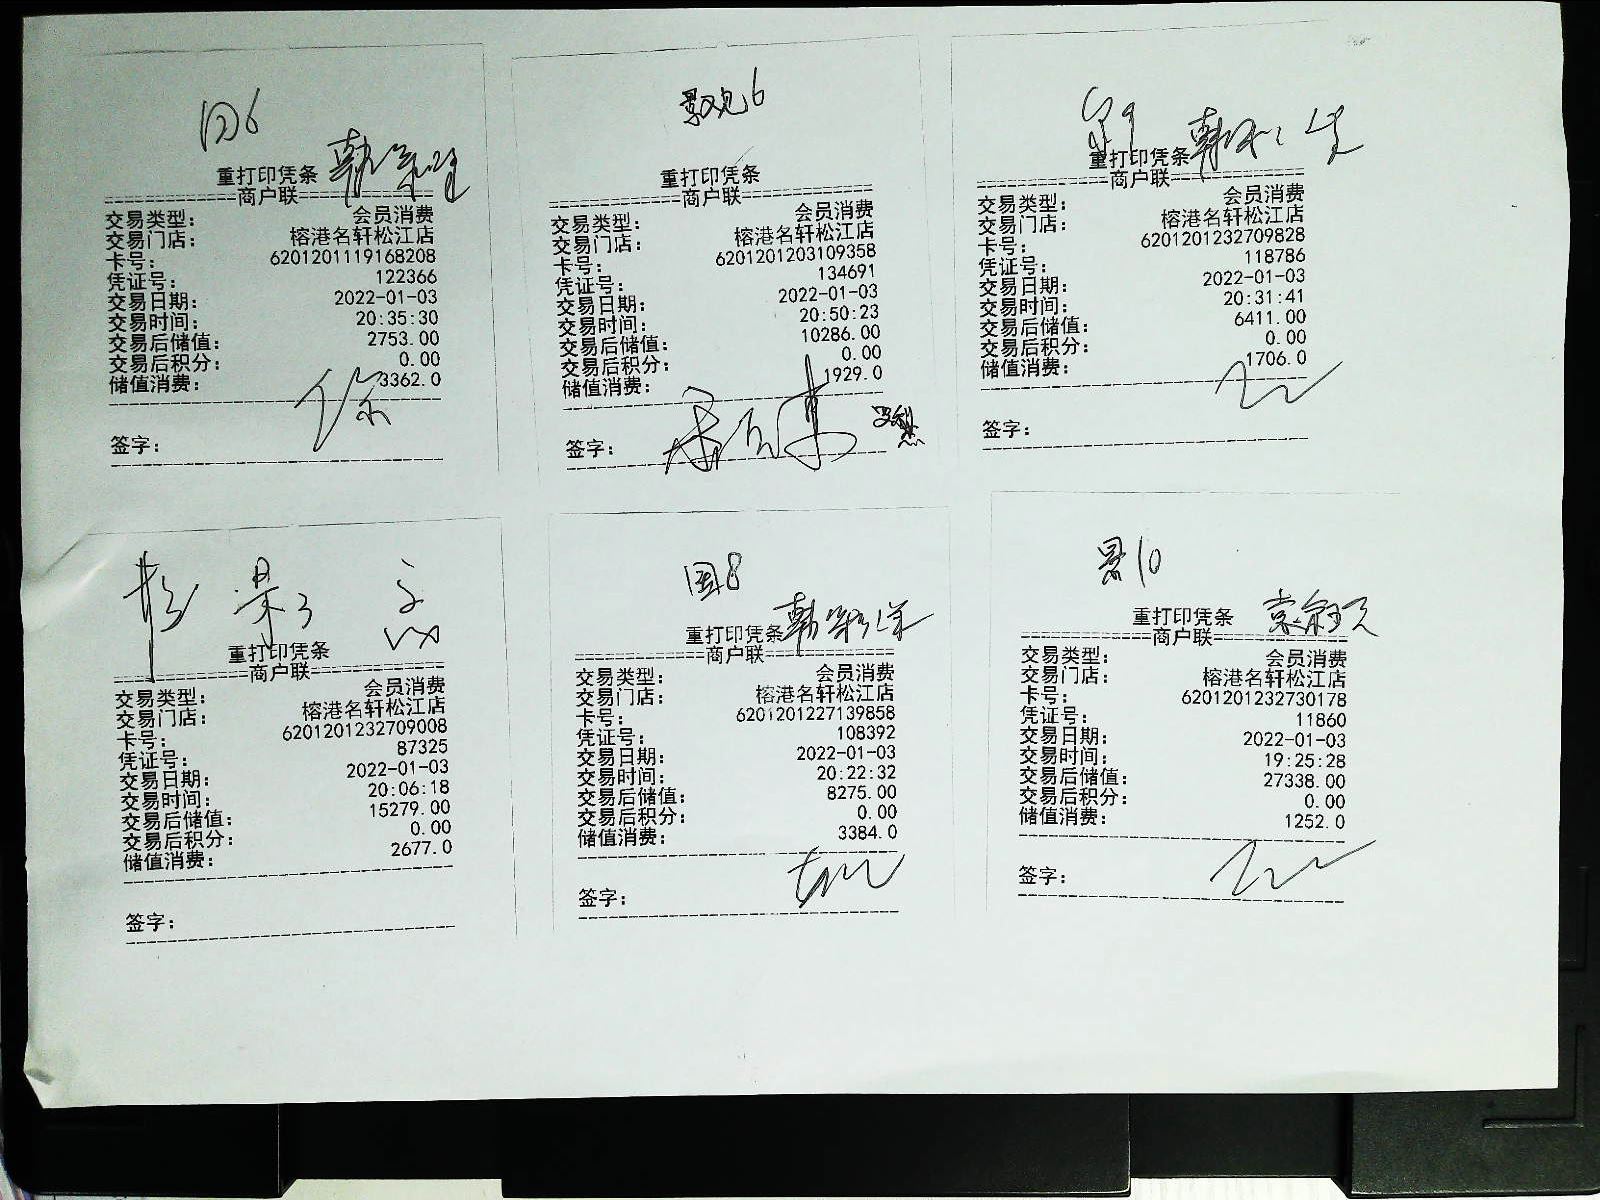 重打印凭条
商户联
交易类型： 会员消费
交易门店： 榕港名轩松江店
卡号： 6201201119168208
凭证号： 122366
交易日期： 2022-01-03
交易时间： 20:35:30
交易后储值： 2753.00
交易后积分： 0.00
储值消费： 3362.0
签字：
景观6
重打印凭条
商户联
交易类型： 会员消费
交易门店： 榕港名轩松江店
卡号： 6201201203109358
凭证号： 134691
交易日期： 2022-01-03
交易时间： 20:50:23
交易后储值： 10286.00
交易后积分： 0.00
储值消费： 1929.0
签字：
重打印凭条
商户联
交易类型： 会员消费
交易门店： 榕港名轩松江店
卡号： 6201201232709828
凭证号： 118786
交易日期： 2022-01-03
交易时间： 20:31:41
交易后储值： 6411.00
交易后积分： 0.00
储值消费： 1706.0
签字：
重打印凭条
商户联
交易类型： 会员消费
交易门店： 榕港名轩松江店
卡号： 6201201232709008
凭证号： 87325
交易日期： 2022-01-03
交易时间： 20:06:18
交易后储值： 15279.00
交易后积分： 0.00
储值消费： 2677.0
签字：
国8
重打印凭条
商户联
交易类型： 会员消费
交易门店： 榕港名轩松江店
卡号： 6201201227139858
凭证号： 108392
交易日期： 2022-01-03
交易时间： 20:22:32
交易后储值： 8275.00
交易后积分： 0.00
储值消费： 3384.0
签字：
景10
重打印凭条
商户联
交易类型： 会员消费
交易门店： 榕港名轩松江店
卡号： 6201201232730178
凭证号： 11860
交易日期： 2022-01-03
交易时间： 19:25:28
交易后储值： 27338.00
交易后积分： 0.00
储值消费： 1252.0
签字：